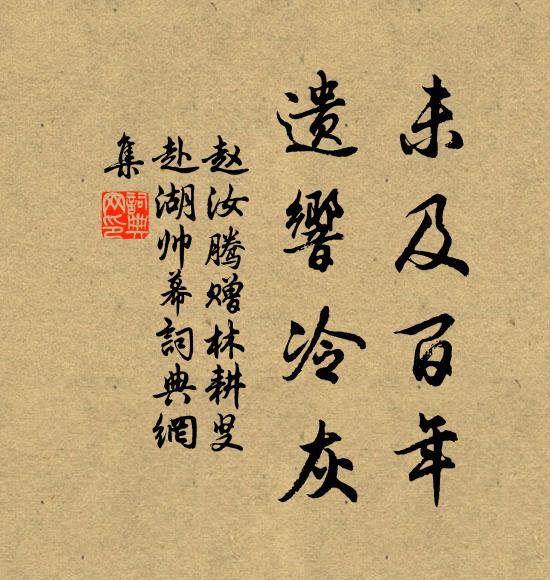 未及百年
遗響冷灰
赵汝腾赠林耕叟
赴湖帅幕詞典網
集
詞典網印